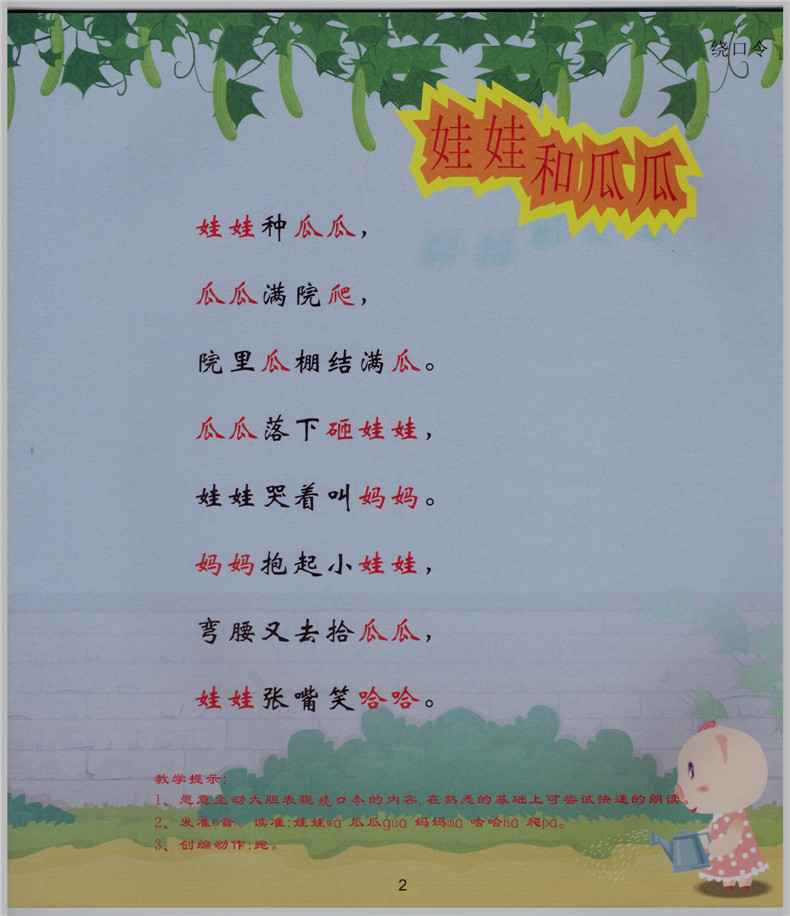 绕口令
娃娃和瓜瓜
娃娃种瓜瓜，
瓜瓜满院爬，
院里瓜棚结满瓜。
瓜瓜落下砸娃娃，
娃娃哭着叫妈妈。
妈妈抱起小娃娃，
弯腰又去拾瓜瓜，
娃娃张嘴笑哈哈。
教学提示：
1、愿意主动大胆表现绕口令的内容,在熟悉的基础上可尝试快速的朗读。
2、发准a音。读准:娃娃wá 瓜瓜guā 妈妈mā 哈哈hā 爬pá。
3、创编动作:跑。
2